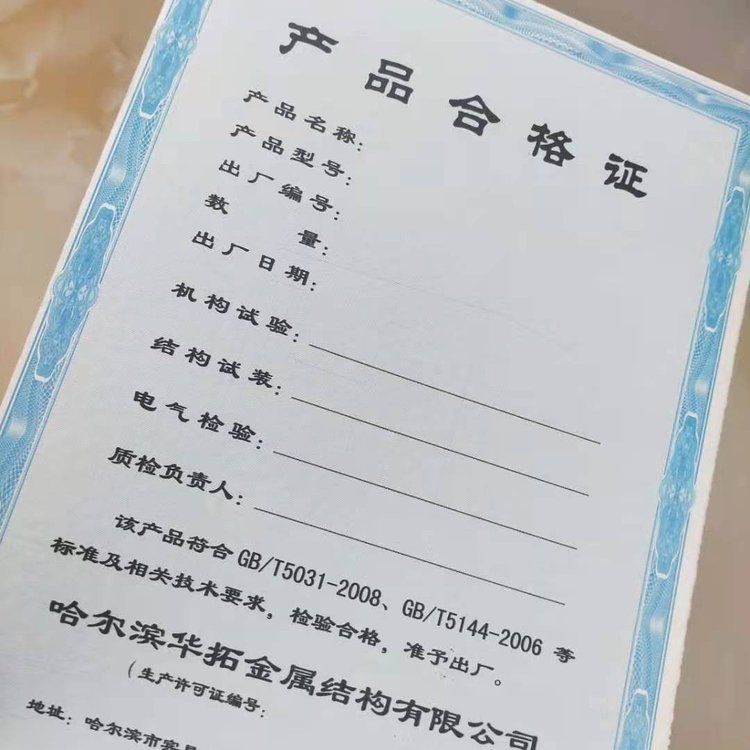 产品合格证
产品名称:
产品型号:
出厂编号:
数量:
出厂日期:
机构试验:
结构试装:
电气检验:
质检负责人:
该产品符合GB/T5031-2008、GB/T5144-2006等
标准及相关技术要求，检验合格，准予出厂。
哈尔滨华拓金属结构有限公司
(生产许可证编号:
地址: 哈尔滨市宾县